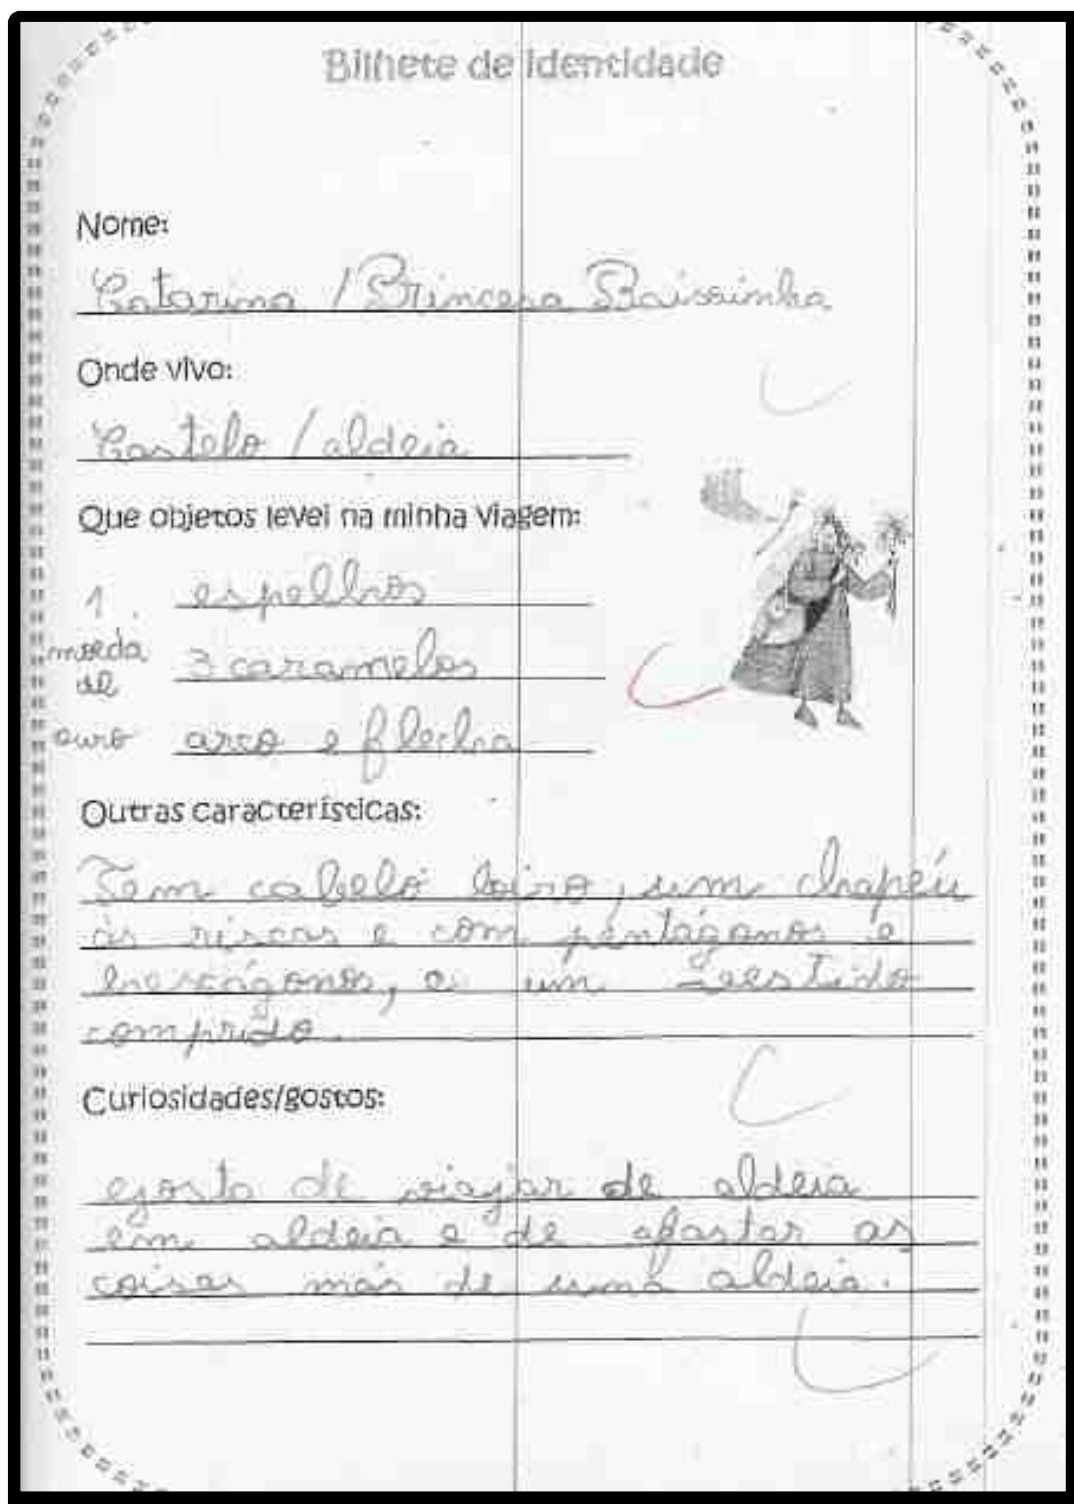 Bilhete de identidade
Nome:
Catarina / Princesa Baixinha
Onde vivo:
Castelo / aldeia
Que objetos levei na minha viagem:
1 espelhos
moeda 3 caramelos
de
ouro arco e flecha
Outras características:
Tem cabelo loiro, um chapéu
às riscas e com pentágonos e
hexágonos, e um vestido
comprido.
Curiosidades/gostos:
gosta de viajar de aldeia
em aldeia e de afastar as
coisas más de uma aldeia.